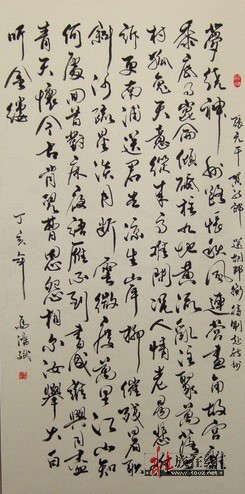 张元干 贺新郎 送胡邦衡待制赴新州
梦绕神州路怅秋风连营画角故宫离
黍底事昆仑倾砥柱九地黄流乱注聚万落千
村狐兔天意从来高难问况人情老易悲难
诉更南浦送君去凉生岸柳催残暑耿
斜河疏星淡月断云微度万里江山知
何处回首对床夜语雁不到书成谁与目尽
青天怀今古肯儿曹恩怨相尔汝举大白
听金缕
丁亥年